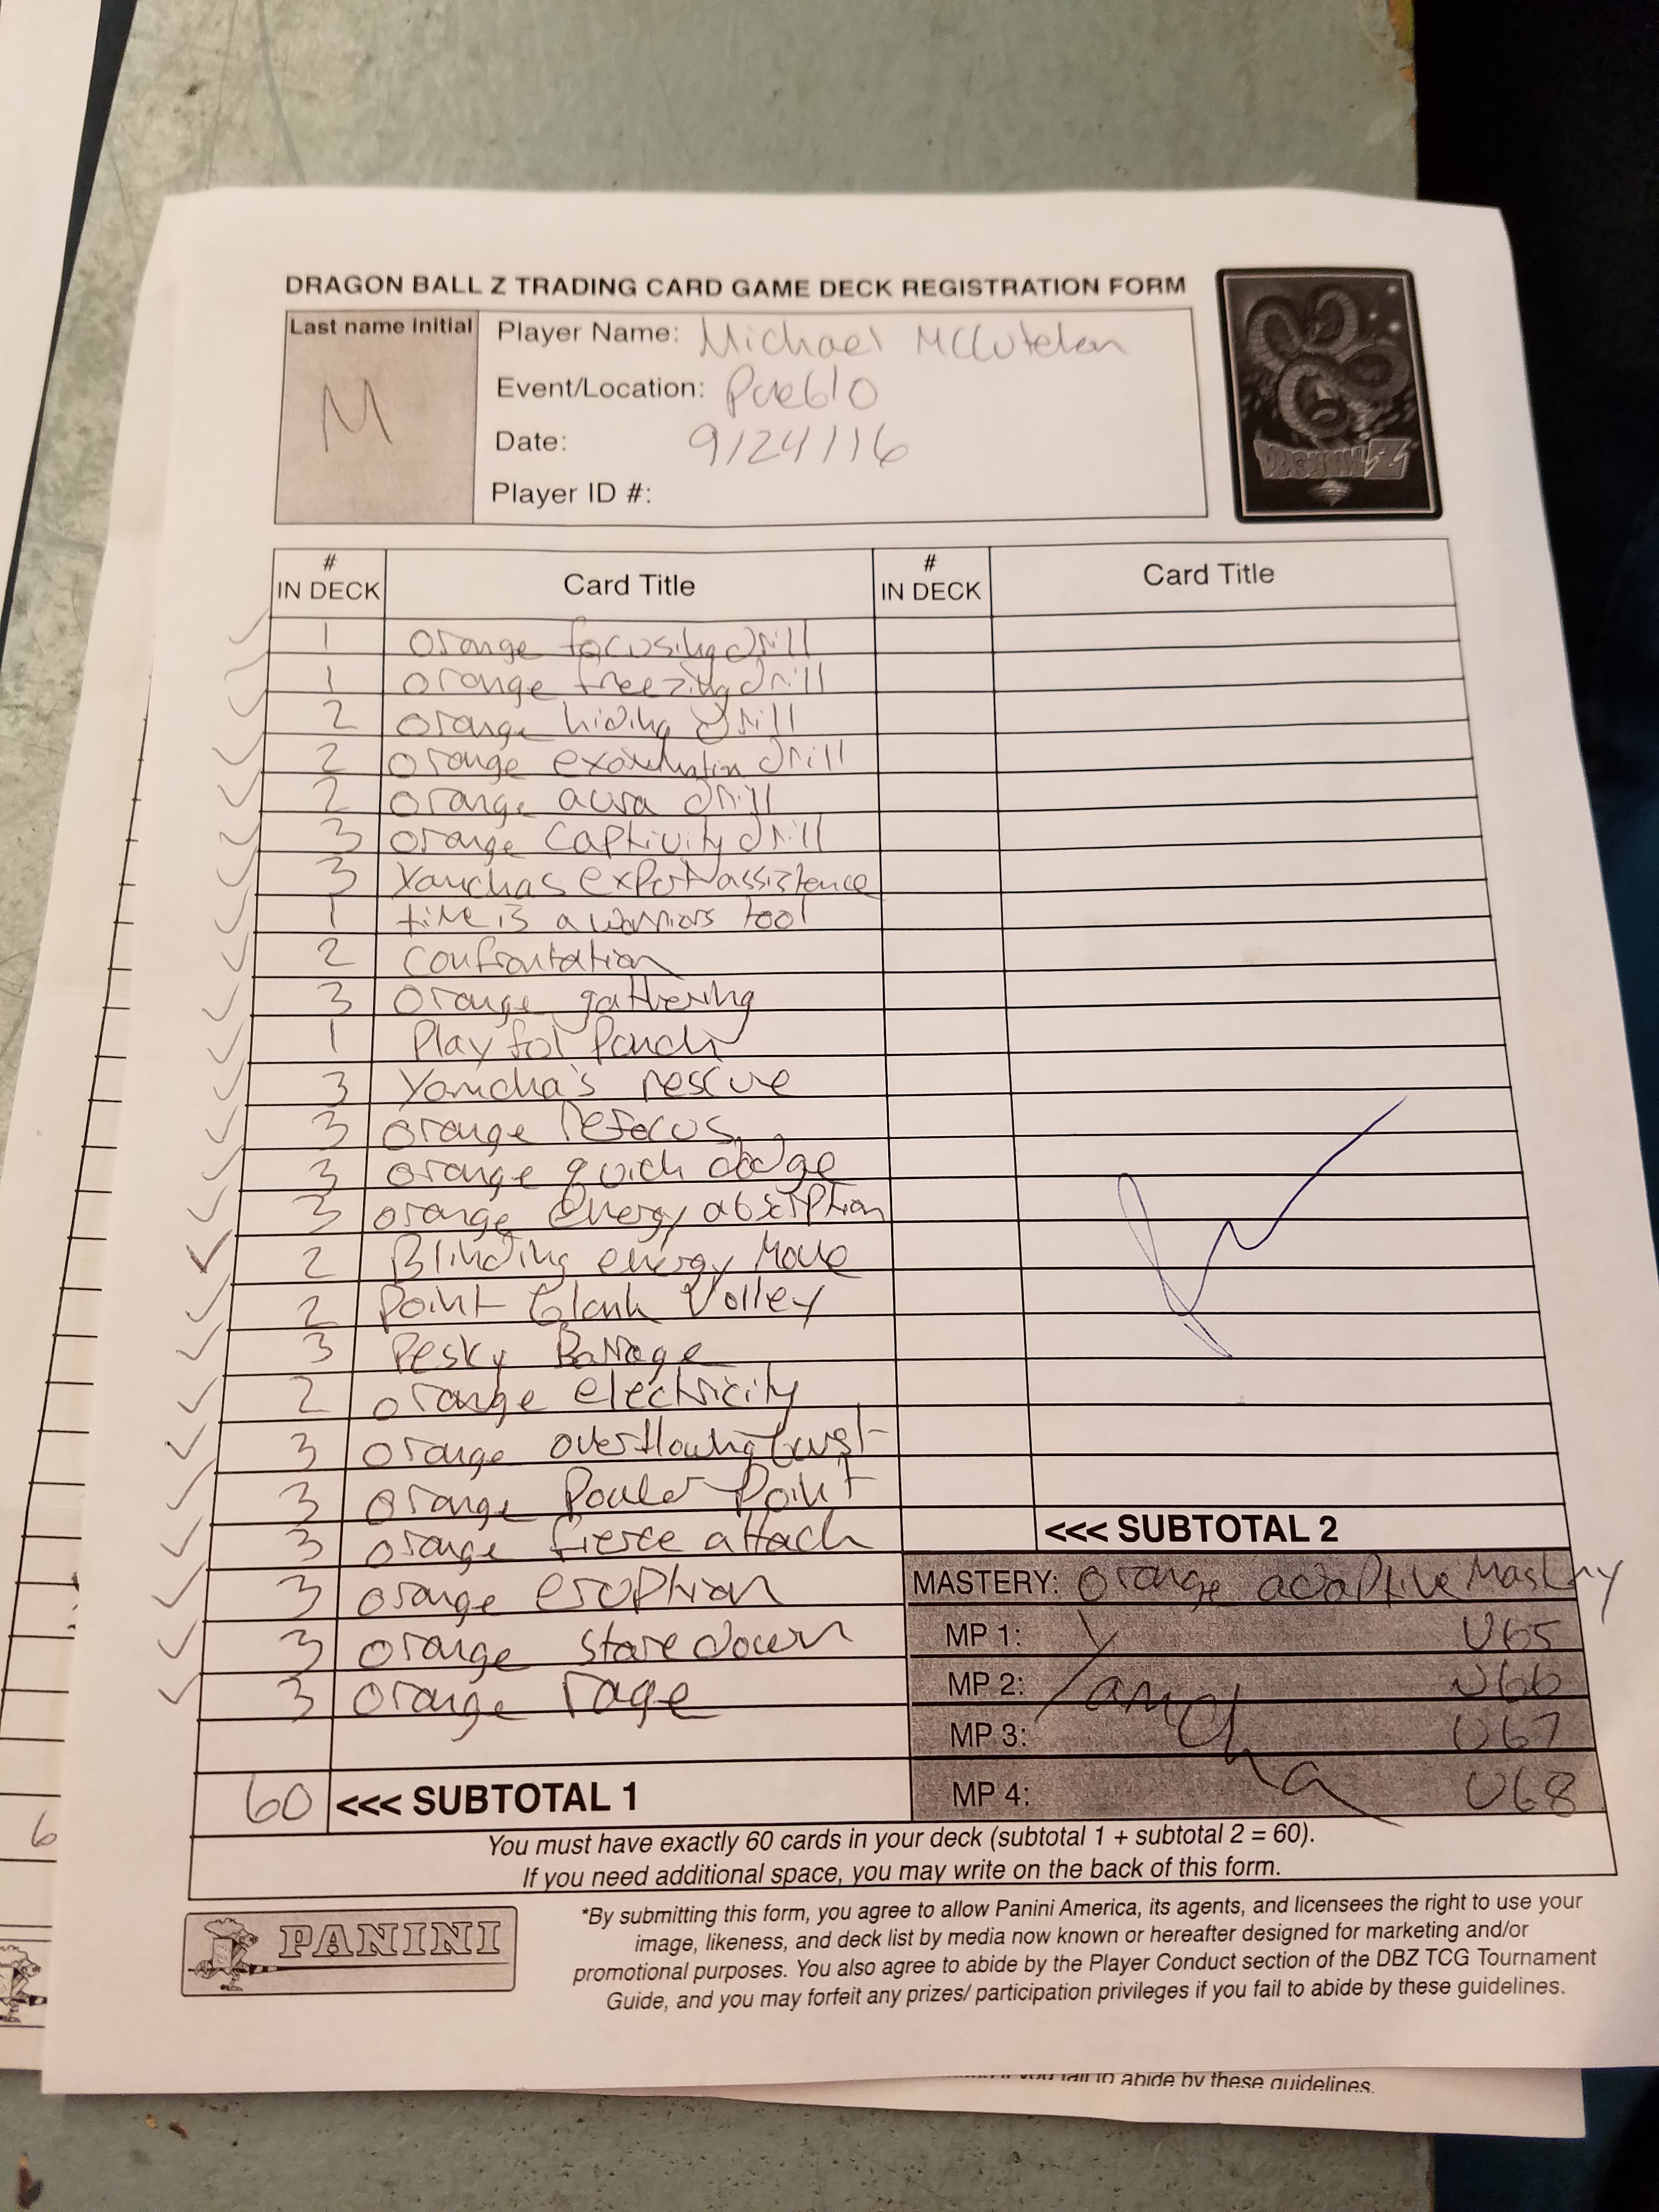 DRAGON BALL Z TRADING CARD GAME DECK REGISTRATION FORM
Last name initial
M
Player Name: Michael McCutchen
Event/Location: Pueblo
Date: 9/24/16
Player ID #:
# IN DECK Card Title # IN DECK Card Title
1 orange focusing drill
1 orange freezing drill
2 orange hiding drill
2 orange examination drill
2 orange aura drill
3 orange captivity drill
3 Yamchas expert assistence
1 time is a warriors tool
2 confrontation
3 orange gathering
1 Playful Punch
3 Yamcha's rescue
3 orange refocus
3 orange quick dodge
3 orange energy absorption
2 Blinding energy Move
2 Point blank Volley
3 Pesky Barrage
2 orange electricity
3 orange overflowing burst
3 orange Power Point
3 orange fierce attack
3 orange eruption
3 orange stare down
3 orange rage
60 <<< SUBTOTAL 1
<<< SUBTOTAL 2
MASTERY: orange adaptive Mastery
MP 1: Yamcha U65
MP 2: U66
MP 3: U67
MP 4: U68
You must have exactly 60 cards in your deck (subtotal 1 + subtotal 2 = 60).
If you need additional space, you may write on the back of this form.
PANINI
*By submitting this form, you agree to allow Panini America, its agents, and licensees the right to use your
image, likeness, and deck list by media now known or hereafter designed for marketing and/or
promotional purposes. You also agree to abide by the Player Conduct section of the DBZ TCG Tournament
Guide, and you may forfeit any prizes/ participation privileges if you fail to abide by these guidelines.
you fail to abide by these guidelines.
6